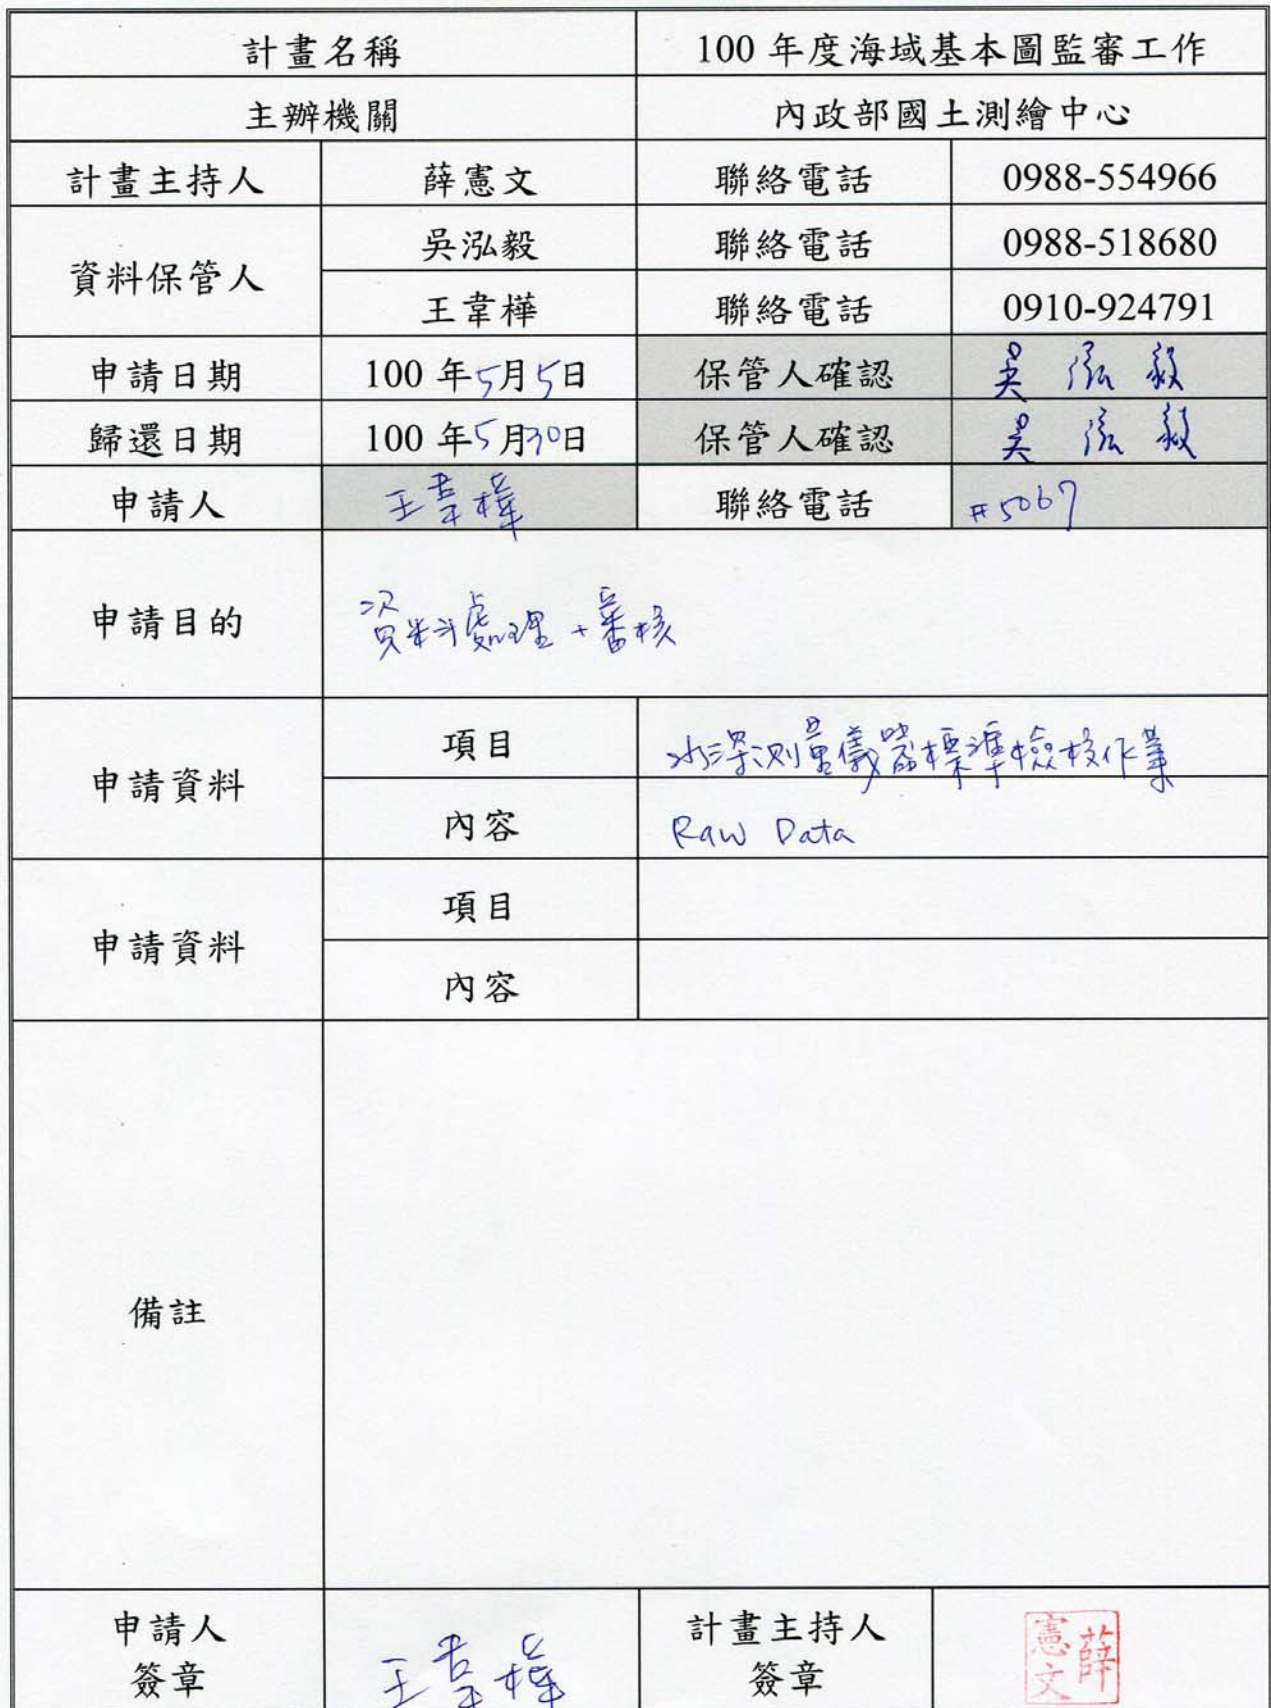 計畫名稱 100 年度海域基本圖監審工作
主辦機關 內政部國土測繪中心
計畫主持人 薛憲文 聯絡電話 0988-554966
資料保管人 吳泓毅 聯絡電話 0988-518680
王韋樺 聯絡電話 0910-924791
申請日期 100 年5月5日 保管人確認 吳泓毅
歸還日期 100 年5月30日 保管人確認 吳泓毅
申請人 王韋樺 聯絡電話 #5067
申請目的 資料處理+審核
申請資料 項目 水深測量儀器標準檢校作業
內容 Raw Data
申請資料 項目
內容
備註
申請人 簽章 王韋樺 計畫主持人 簽章 薛憲文